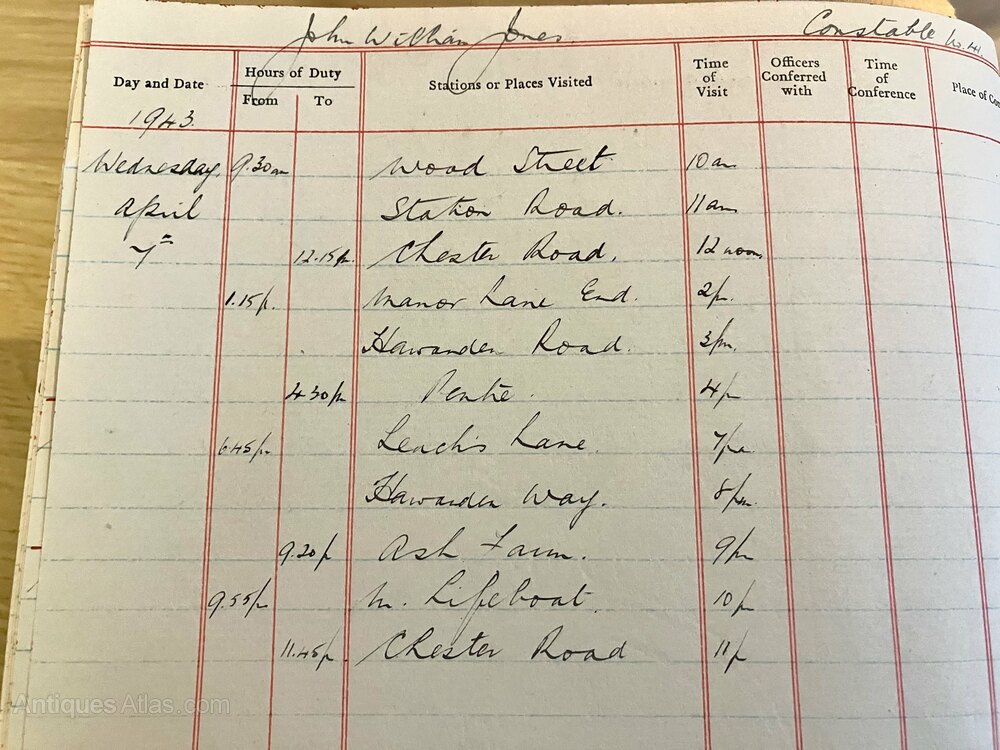 John William Jones. Constable
Day and Date Hours of Duty From To Stations or Places Visited Time of Visit Officers Conferred with Time of Conference Place of
1943.
Wednesday 9.30am Wood Street 10am
April Station Road. 11am
7th 12.15p. Chester Road. 12 noon.
1.15p. Manor Lane End. 2p.
Hawarden Road. 3pm.
4.30p Pentre. 4p
6.45p. Leach's Lane. 7pm.
Hawarden Way. 8pm.
9.20p Ash Farm. 9pm
9.55p Lifeboat. 10p
11.45p. Chester Road 11p
Antiques Atlas.com